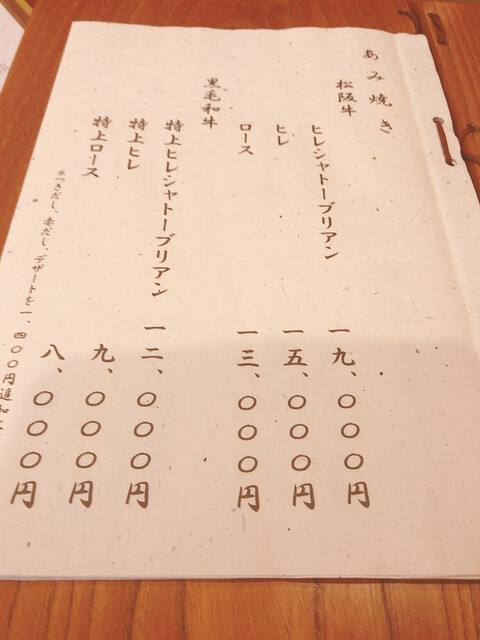 あみ焼き
松阪牛
ヒレシャトーブリアン 一九、〇〇〇円
ヒレ 一五、〇〇〇円
ロース 一三、〇〇〇円
黒毛和牛
特上ヒレシャトーブリアン 一二、〇〇〇円
特上ヒレ 九、〇〇〇円
特上ロース 八、〇〇〇円
つきだし、赤だし、デザートを一、四〇〇円追加